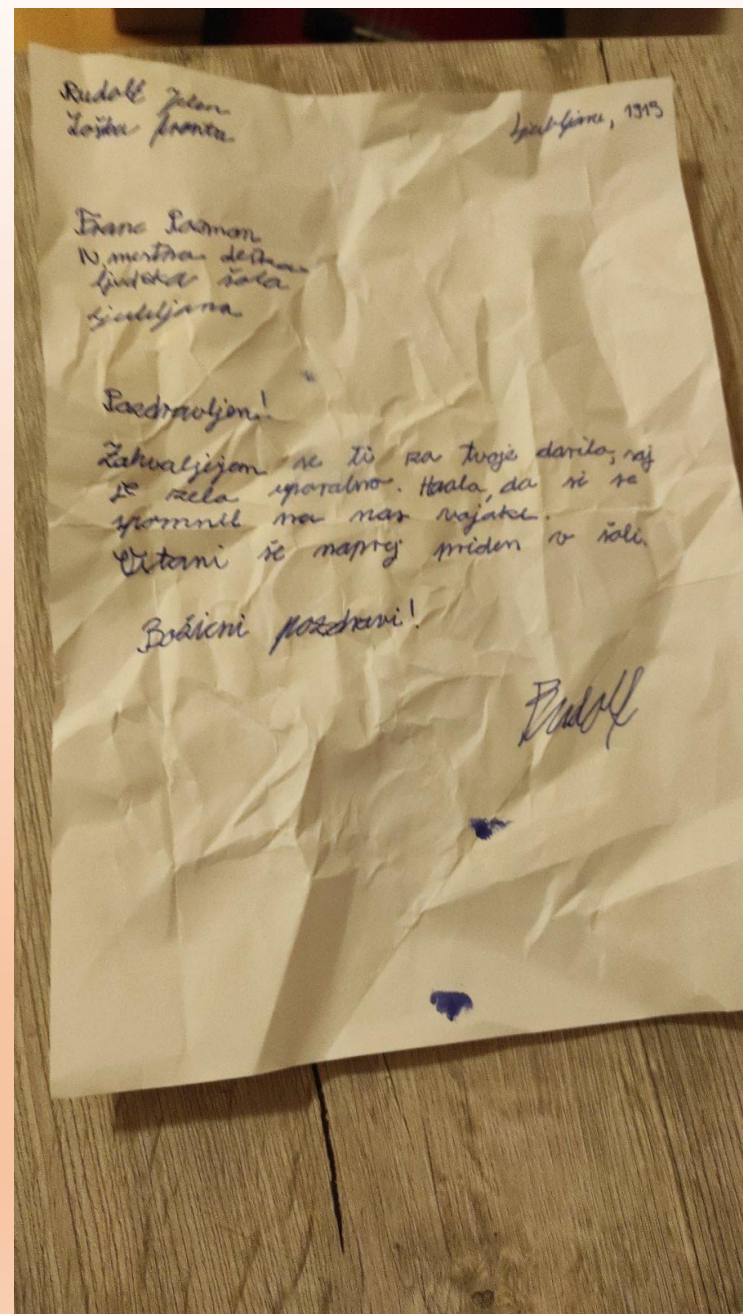 Rudolf Jelen
Ljubljana, 1915
Soška fronta
Franc Rozman
IV mestna deška
ljudska šola
Ljubljana
Pozdravljen!
Zahvaljujem se ti za tvoje darilo, saj
je zelo uporabno. Hvala, da si se
spomnil na nas vojake.
Ostani še naprej priden v šoli.
Božični pozdravi!
Rudolf